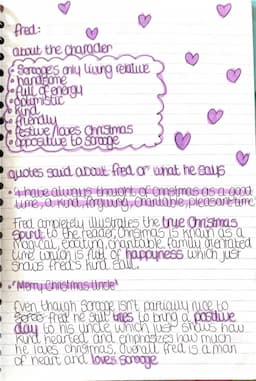 fred:
about the character
• Scrooges only living relative
• handsome
• full of energy
• optimistic
• kind
• friendly
• festive/loves Christmas
• oppositive to Scrooge
quotes said about fred or what he says
• "I have always thought of christmas as a good
time, a kind, forgiving, charitable, pleasant time"
Fred completely illustrates the true Christmas
spirit to the reader, Christmas is known as a
magical, exciting, charitable, family orientated
time which is full of happyness which just
shows fred's kind
• "Merry Christmas Uncle"
Even though scrooge isn't particually nice to
fred he still tries to bring a positive
day to his uncle which just shows how
kind hearted and emphasizes how much
he loves christmas, overall fred is a man
of heart and loves scrooge